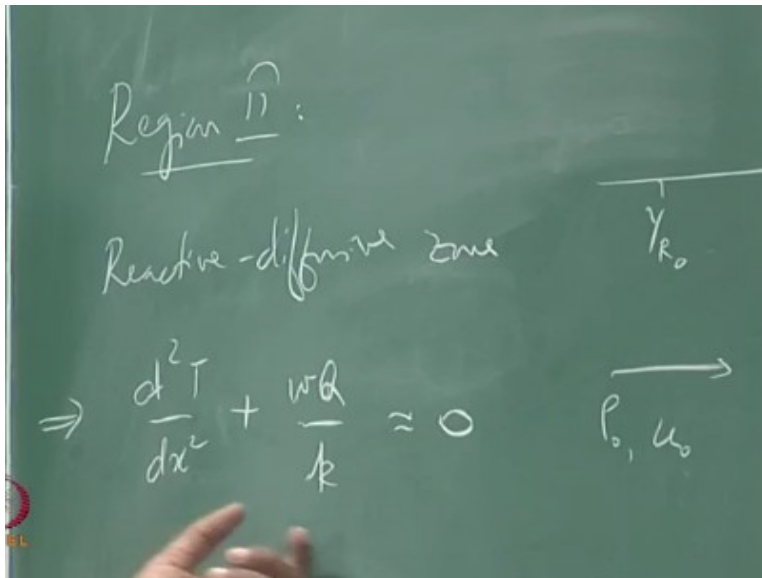 Region II :
Reactive-diffusive zone
Y_{R_0}
⇒ d²T/dx² + wQ/k ≈ 0
ρ₀, u₀